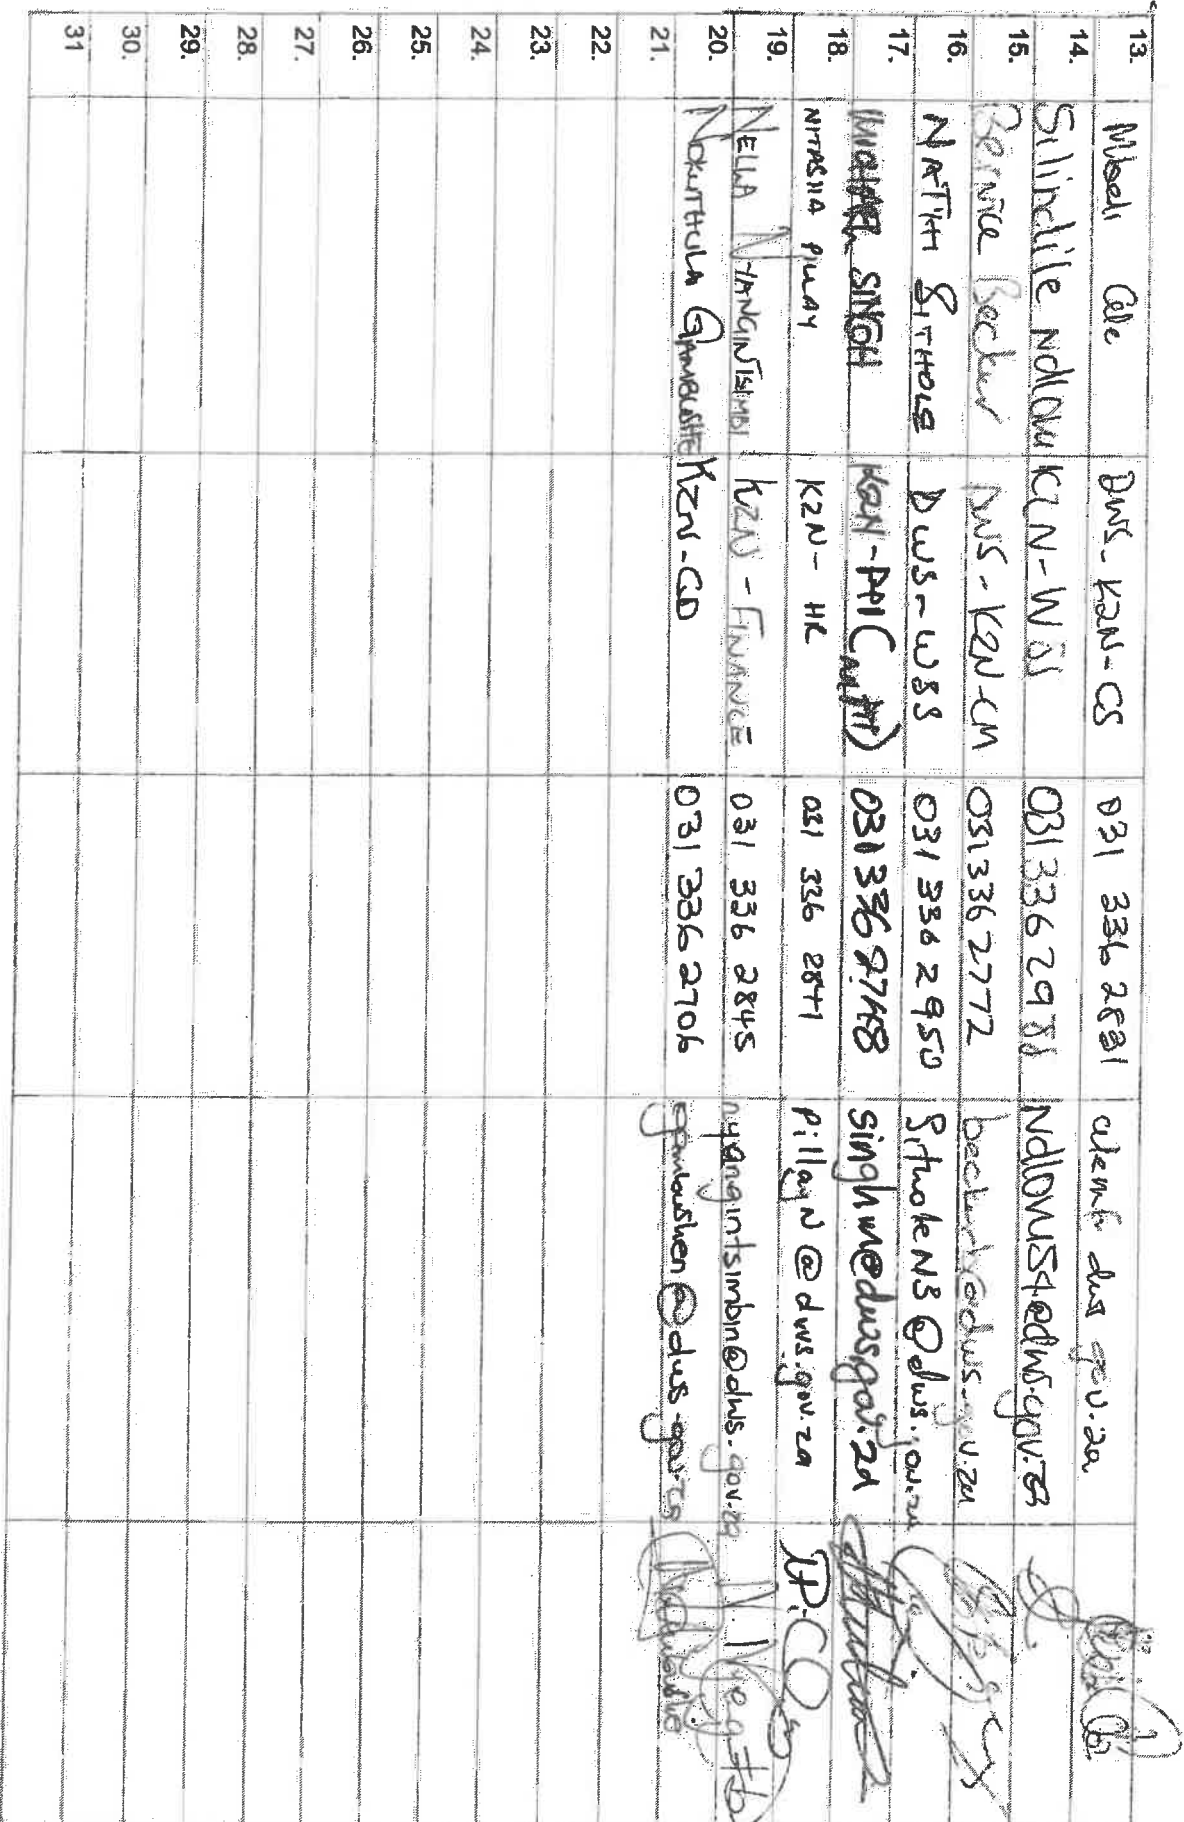 13. Mbali Cele DWS-KZN-CS 031 336 2831 dws gov.za
14. Silindile Ndlovu KZN-W 031336 29 NdlovuS4@dws.gov.za
15. Bernice Becker DWS-KZN-CM 031336 2772 beckerb@dws.gov.za
16. NATHI SITHOLE DWS-WSS 031 336 2950 SitholeNS@dws.gov.za
17. SINGH KZN- 031336 2748 singhm@dws.gov.za
18. NITASHA PILLAY KZN-HR 031 336 PillayN@dws.gov.za
19. NELLA NYANGINTSIMBI KZN-FINANCE 031 336 2845 nyangintsimbin@dws.gov.za
20. NOKUTHULA GAMBUSHE KZN-GD 031 336 2706 gambushen@dws.gov.za
21.
22.
23.
24.
25.
26.
27.
28.
29.
30.
31